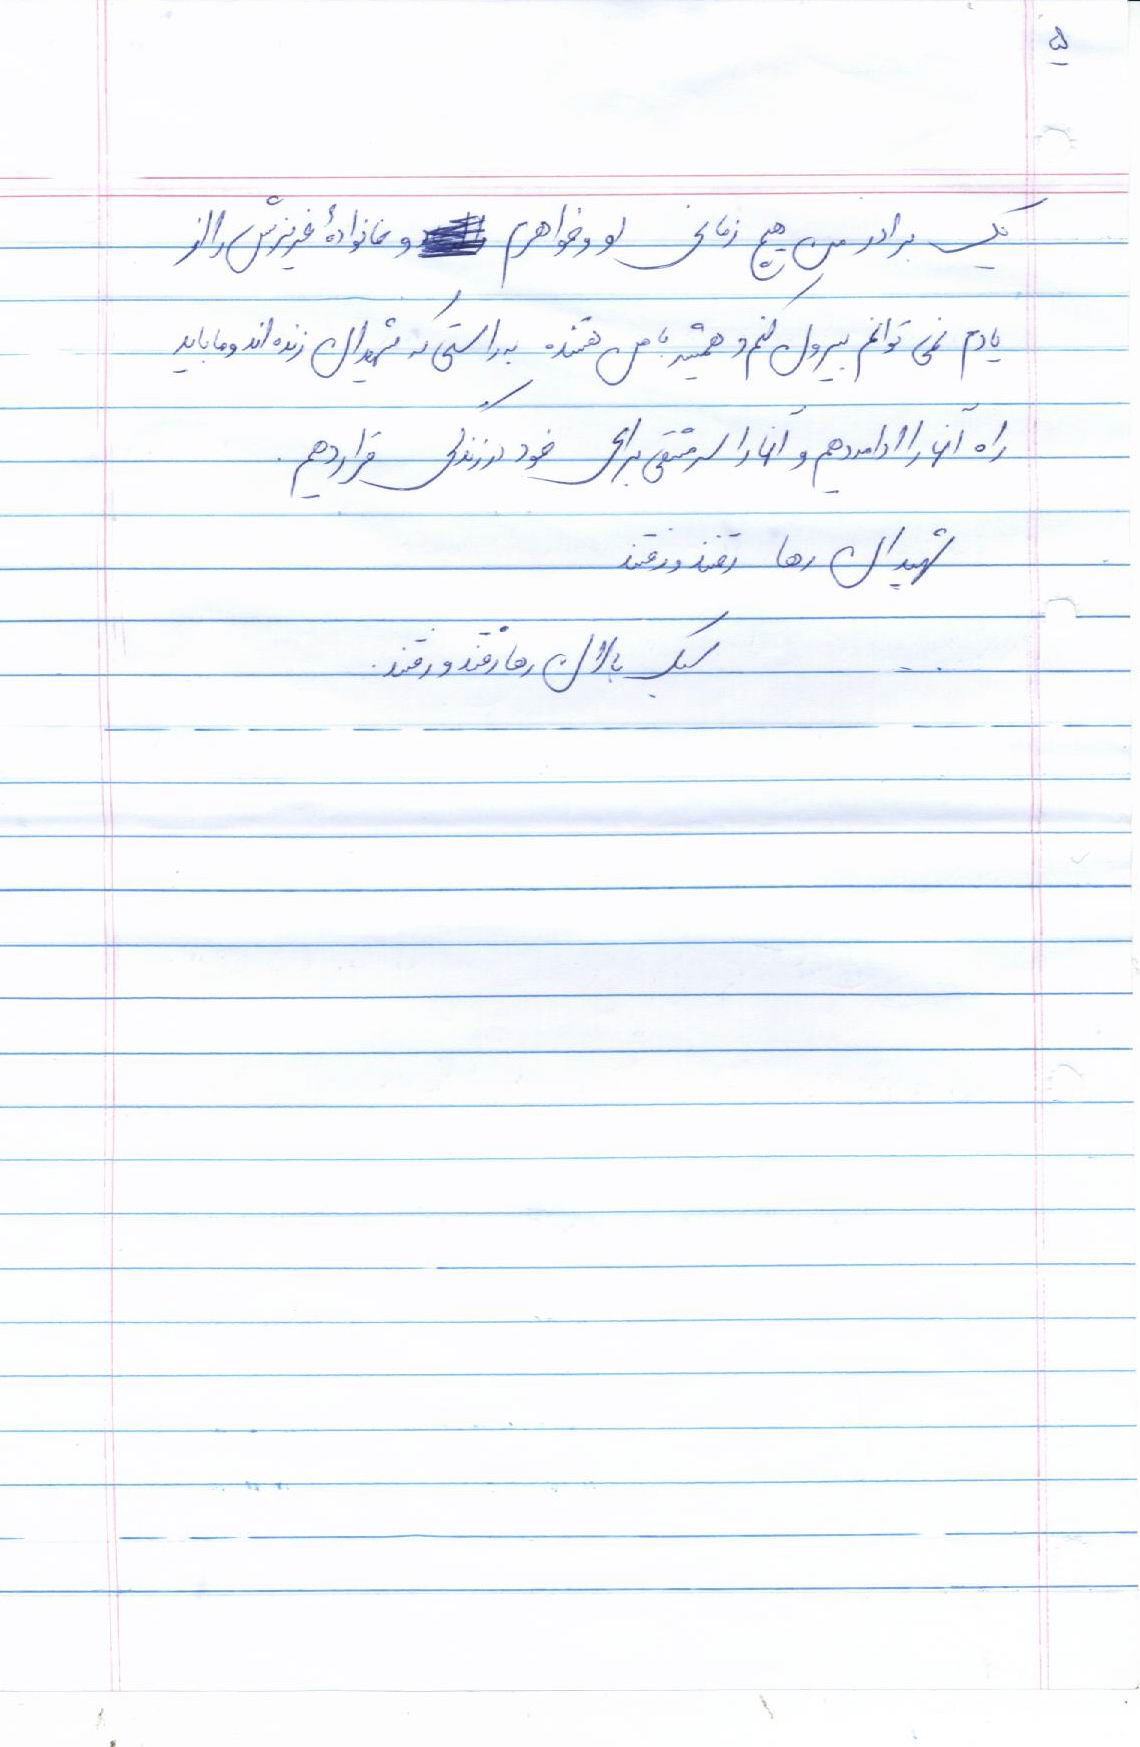 ۵
یک برادر من هیچ زمانی او و خواهرم و خانوادهٔ عزیزش را از
یادم نمی توانم بیرون کنم و همیشه با من هستند به راستی که شهیدان زنده اند و ما باید
راه آنها را ادامه دهیم و آنها را سرمشقی برای خود در زندگی قرار دهیم .
شهیدان رها رفتند و رفتند
سبک بالان رها رفتند و رفتند .